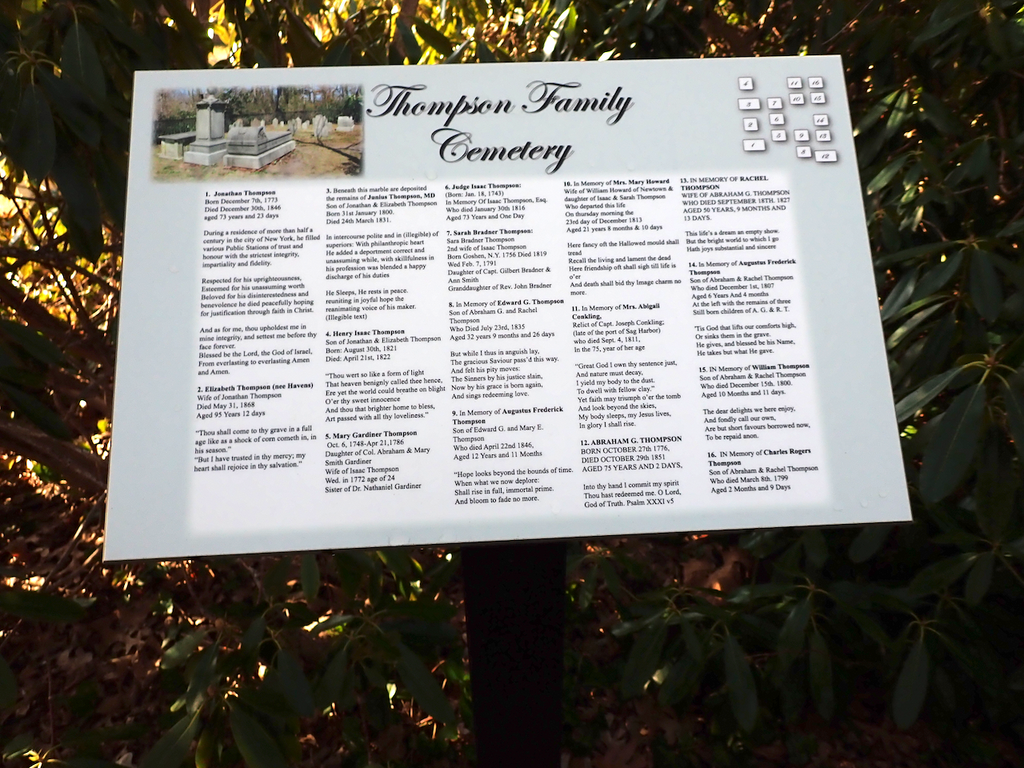 Thompson Family
Cemetery
1. Jonathan Thompson
Born December 7th, 1773
Died December 30th, 1846
aged 73 years and 23 days
During a residence of more than half a
century in the city of New York, he filled
various Public Stations of trust and
honour with the strictest integrity,
impartiality and fidelity.
Respected for his uprighteousness,
Esteemed for his unassuming worth
Beloved for his disinterestedness and
benevolence he died peacefully hoping
for justification through faith in Christ.
And as for me, thou upholdest me in
mine integrity, and settest me before thy
face forever.
Blessed be the Lord, the God of Israel,
From everlasting to everlasting Amen
and Amen.
2. Elizabeth Thompson (nee Havens)
Wife of Jonathan Thompson
Died May 31, 1868
Aged 95 Years 12 days
"Thou shall come to thy grave in a full
age like as a shock of corn cometh in, in
his season."
"But I have trusted in thy mercy; my
heart shall rejoice in thy salvation."
3. Beneath this marble are deposited
the remains of Junius Thompson, MD
Son of Jonathan & Elizabeth Thompson
Born 31st January 1800.
Died 24th March 1831.
In intercourse polite and in (illegible) of
superiors: With philanthropic heart
He added a deportment correct and
unassuming while, with skillfulness in
his profession was blended a happy
discharge of his duties
He Sleeps, He rests in peace.
reuniting in joyful hope the
reanimating voice of his maker.
(Illegible text)
4. Henry Isaac Thompson
Son of Jonathan & Elizabeth Thompson
Born: August 30th, 1821
Died: April 21st, 1822
"Thou wert so like a form of light
That heaven benignly called thee hence,
Ere yet the world could breathe on blight
O'er thy sweet innocence
And thou that brighter home to bless,
Art passed with all thy loveliness."
5. Mary Gardiner Thompson
Oct. 6, 1748-Apr 21,1786
Daughter of Col. Abraham & Mary
Smith Gardiner
Wife of Isaac Thompson
Wed. in 1772 age of 24
Sister of Dr. Nathaniel Gardiner
6. Judge Isaac Thompson:
(Born: Jan. 18, 1743)
In Memory Of Isaac Thompson, Esq.
Who died January 30th 1816
Aged 73 Years and One Day
7. Sarah Bradner Thompson:
Sara Bradner Thompson
2nd wife of Isaac Thompson
Born Goshen, N.Y. 1756 Died 1819
Wed Feb. 7, 1791
Daughter of Capt. Gilbert Bradner &
Ann Smith
Granddaughter of Rev. John Bradner
8. In Memory of Edward G. Thompson
Son of Abraham G. and Rachel
Thompson
Who Died July 23rd, 1835
Aged 32 years 9 months and 26 days
But while I thus in anguish lay,
The gracious Saviour pass'd this way.
And felt his pity moves:
The Sinners by his justice slain,
Now by his grace is born again,
And sings redeeming love.
9. In Memory of Augustus Frederick
Thompson
Son of Edward G. and Mary E.
Thompson
Who died April 22nd 1846,
Aged 12 Years and 11 Months
"Hope looks beyond the bounds of time.
When what we now deplore:
Shall rise in full, immortal prime.
And bloom to fade no more.
10. In Memory of Mrs. Mary Howard
Wife of William Howard of Newtown &
daughter of Isaac & Sarah Thompson
Who departed this life
On thursday morning the
23rd day of December 1813
Aged 21 years 8 months & 10 days
Here fancy oft the Hallowed mould shall
tread
Recall the living and lament the dead
Here friendship oft shall sigh till life is
o'er
And death shall bid thy Image charm no
more.
11. In Memory of Mrs. Abigail
Conkling,
Relict of Capt. Joseph Conkling;
(late of the port of Sag Harbor)
who died Sept. 4, 1811,
In the 75, year of her age
"Great God I own thy sentence just,
And nature must decay,
I yield my body to the dust.
To dwell with fellow clay."
Yet faith may triumph o'er the tomb
And look beyond the skies,
My body sleeps, my Jesus lives,
In glory I shall rise.
12. ABRAHAM G. THOMPSON
BORN OCTOBER 27th 1776,
DIED OCTOBER 29th 1851
AGED 75 YEARS AND 2 DAYS,
Into thy hand I commit my spirit
Thou hast redeemed me. O Lord,
God of Truth. Psalm XXXI v5
13. IN MEMORY OF RACHEL
THOMPSON
WIFE OF ABRAHAM G. THOMPSON
WHO DIED SEPTEMBER 18TH. 1827
AGED 50 YEARS, 9 MONTHS AND
13 DAYS.
This life's a dream an empty show.
But the bright world to which I go
Hath joys substantial and sincere
14. In Memory of Augustus Frederick
Thompson
Son of Abraham & Rachel Thompson
Who died December 1st, 1807
Aged 6 Years And 4 months
At the left with the remains of three
Still born children of A. G. & R. T.
'Tis God that lifts our comforts high,
Or sinks them in the grave.
He gives, and blessed be his Name,
He takes but what He gave.
15. IN MEMORY of William Thompson
Son of Abraham & Rachel Thompson
Who died December 15th. 1800.
Aged 10 Months and 11 days.
The dear delights we here enjoy,
And fondly call our own,
Are but short favours borrowed now,
To be repaid anon.
16. IN Memory of Charles Rogers
Thompson
Son of Abraham & Rachel Thompson
Who died March 8th. 1799
Aged 2 Months and 9 Days